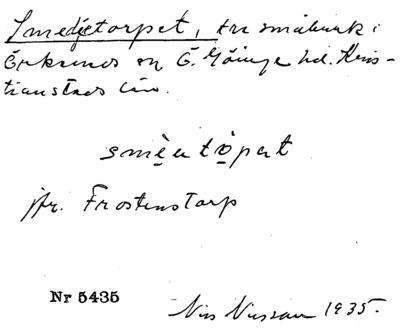 Smedjetorpet, tre småbruk i
Örkeneds sn Ö. Göinge hd. Kris-
tianstads län.
smèatòpat
jfr. Frostenstorp
Nr 5435
Nils 1935.